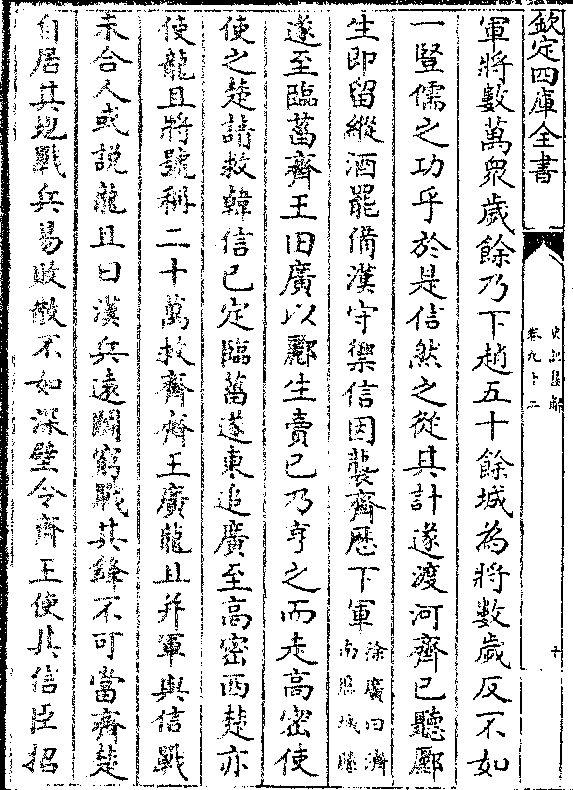 欽定四庫全書
史記集解
卷九十二
十
軍將數萬衆歲餘乃下趙五十餘城為將數歲反不如
一豎儒之功乎於是信然之從其計遂渡河齊已聽酈
生即留縱酒罷備漢守禦信因襲齊歴下軍徐廣曰濟南歴城縣
遂至臨菑齊王田廣以酈生賣已乃亨之而走髙宻使
使之楚請救韓信已定臨菑遂東追廣至髙宻西楚亦
使龍且將號稱二十萬救齊齊王廣龍且并軍與信戰
未合人或說龍且曰漢兵逺鬭窮戰其鋒不可當齊楚
自居其地戰兵易敗散不如深壁令齊王使其信臣招